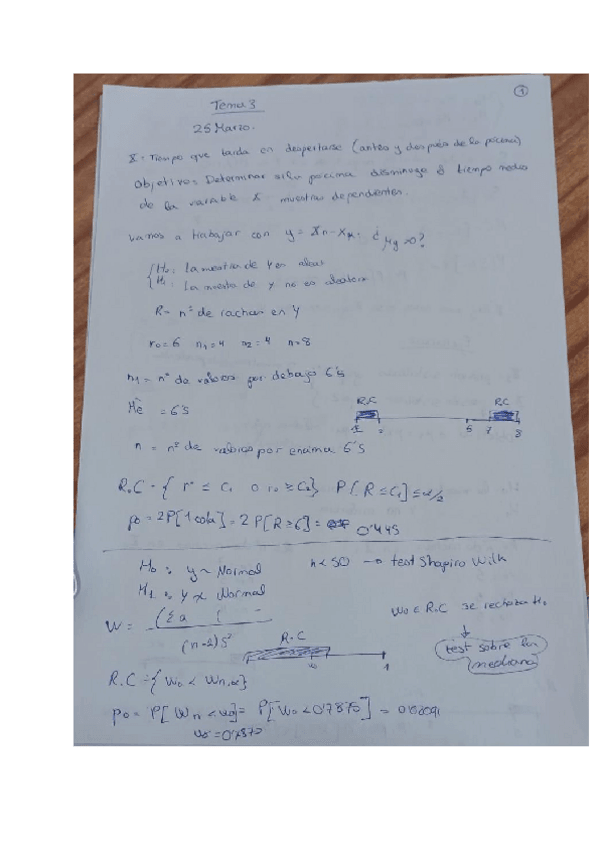 1
Tema 3
25 Marzo.
X = Tiempo que tarda en despertarse (antes y después de la pócima)
Objetivo: Determinar si la pócima disminuye el tiempo medio
de la variable X muestras dependientes.
Vamos a trabajar con y = Xn - X
H0: la muestra de Y es aleat
H1: La muestra de Y no es aleatoria
R = nº de rachas en Y
r0 = 6 n1 = 4 n2 = 4 n = 8
n1 = nº de valores por debajo 6'5
R.C R.C
Me = 6'5
6 7 8
n = nº de valores por encima 6'5
R.C = { r ≤ C1 o r0 ≥ C2} P[R ≤ C1] ≤ α/2
p0 = 2P[1 cola] = 2 P[R ≥ 6] = 0'445
H0: y ~ Normal n < 50 → test Shapiro Wilk
H1: y ≁ Normal
W0 ∈ R.C se rechaza H0
W = (Σ a (
(n-2)S²
R.C
1
test sobre la
mediana
R.C = { W0 < Wn,α}
p0 = P[Wn < w0] = P[W0 < 0'7870] =
w0 = 0'7870